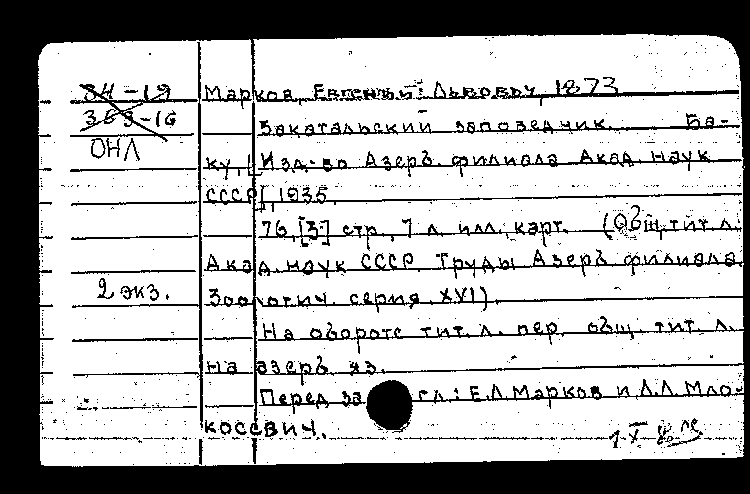 34-19
363-16
ОНЛ
2 экз.
Марков, Евгений Львович, 1873
Закатальский заповедчик. Ба-
ку, [Изд-во Азерб. филиала Акад. наук
СССР], 1935.
76, [3] стр., 7 л. илл., карт. (Общ. тит. л.:
Акад. наук СССР. Труды Азерб. филиала.
Зоологич. серия. XVI).
На обороте тит. л. пер. общ. тит. л.
на азерб. яз.
Перед загл.: Е.Л. Марков и Л.Л. Мло-
косевич.